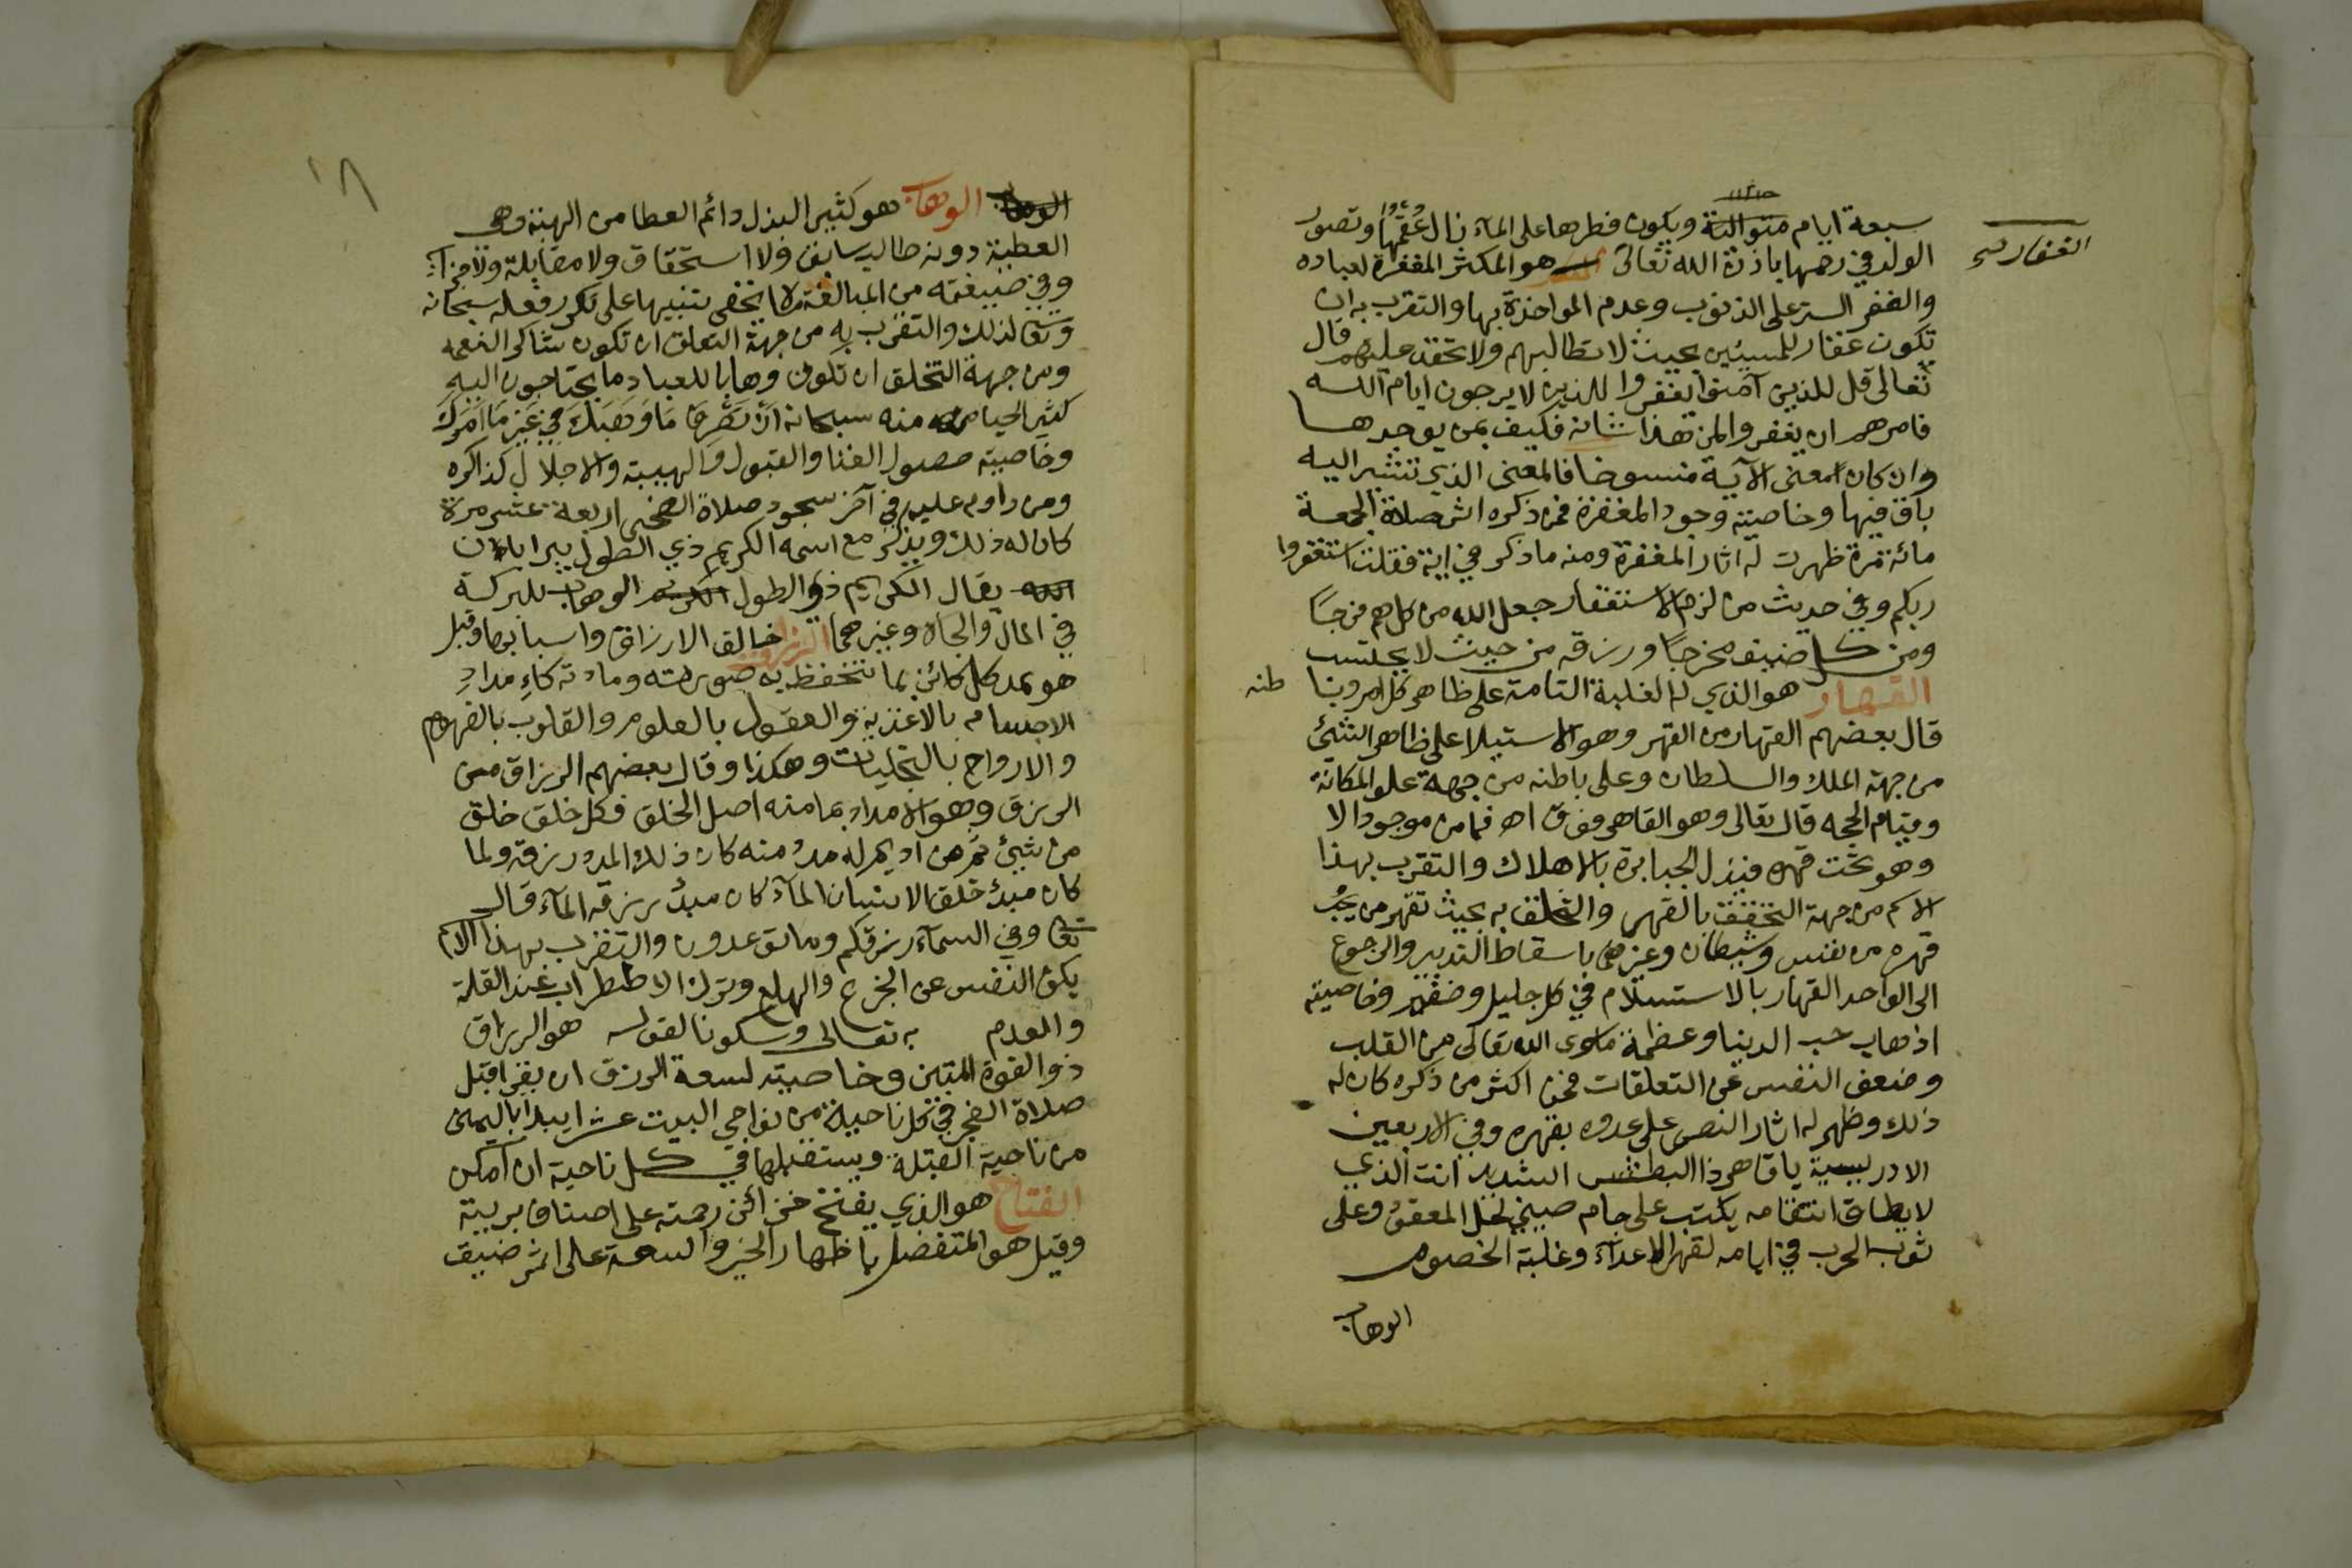 سبعة ايام متوالية ويكون فطرها على الماء زال عقمها وتصور
الغفار صح
الولد في رحمها باذن الله تعالى هو المكثر المغفرة لعباده
والغفر الستر على الذنوب وعدم المواخذة بها والتقرب به ان
تكون غفار للمسيئين بحيث لا تطالبهم ولا تحقد عليهم قال
تعالى قل للذين آمنوا يغفروا للذين لا يرجون ايام الله
فامرهم ان يغفر والمن هذا شانه فكيف بمن يوجدها
وان كان معنى الآية منسوخا فالمعنى الذي تشير اليه
باق فيها وخاصيته وجود المغفرة فمن ذكره اثر صلاة الجمعة
مائة مرة ظهرت له اثار المغفرة ومنه ما ذكر في اية فقلت استغفروا
ربكم وفي حديث من لزم الاستغفار جعل الله من كل هم فرجًا
ومن كل ضيق مخرجًا ورزقه من حيث لا يحتسب
القهار هو الذي له الغلبة التامة على ظاهر كل امر وبا طنه
قال بعضهم القهار من القهر وهو الاستيلا على ظاهر الشئ
من جهة الملك والسلطان وعلى باطنه من جهة علو المكانة
وقيام الحجه قال تعالى وهو القاهر فوق اه فما من موجود الا
وهو تحت قهره فيذل الجبابرة بالاهلاك والتقرب بهذا
الاسم من جهة التحقق بالقهر والتخلق به بحيث تقهر من يجب
قهره من نفس وشيطان وغيرهما باسقاط التدبير والرجوع
الى الواحد القهار بالاستسلام في كل جليل وحقير وخاصيته
اذهاب حب الدنيا وعظمة ما سوى الله تعالى من القلب
وضعف النفس عن التعلقات فمن اكثر من ذكره كان له
ذلك وظهر له اثار النصر على عدوه بقهره وفي الاربعين
الادريسية يا قاهر ذا البطش الشديد انت الذي
لا يطاق انتقامه يكتب على جام صيني لحل المعقود وعلى
ثوب الحرب في ايامه لقهر الاعداء وغلبة الخصوم
الوهاب
١٨
الوهاب الوهاب هو كثير البذل دائم العطا من الهبة وهي
العطية دونه طالب سابق ولا استحقاق ولا مقابلة ولا جزاء
وفي صيغته من المبالغة ما لا يخفى تنبيها على تكرر فعله سبحانه
وتعا لذلك والتقرب به من جهة التعلق ان تكون شاكر النعمه
ومن جهة التخلق ان تكون وهابا للعباد ما يحتاجون اليه
كثير الحيا منه سبحانه ان تصرف ما وهبك في غير ما امرك
وخاصيته حصول الغنا والقبول والهيبة والاجلال لذاكره
ومن داوم عليه في آخر سجود صلاة الضحى اربعة عشر مرة
كان له ذلك ويذكر مع اسمه الكريم ذي الطول يبرا باذن
الله يقال الكريم ذو الطول الكريم الوهاب للبركة
في المال والجاه وغيرهما الرزاق خالق الارزاق واسبابها وقيل
هو يمد كل كائن بما تتحفظ به صورته ومادته كاء مداد
الاجسام بالاغذية والعقول بالعلوم والقلوب بالفهوم
والارواح بالتجليات وهكذا وقال بعضهم الرزاق من
الرزق وهو الامداد بما منه اصل الخلق فكل خلق خلق
من شئ ثم هو اديم له مدد منه كان ذلك المدد رزقه ولما
كان مبدئ خلق الانسان الماء كان مبدئ رزقه الماء قال
تعا وفي السماء رزقكم وما توعدون والتقرب بهذا الاسم
يكف النفس عن الجزع والهلع وترك الاضطراب عند القلة
والعدم به تعالى وسكونا لقوله هو الرزاق
ذو القوة المتين وخاصيته لسعة الرزق ان يقرا قبل
صلاة الفجر في كل ناحية من نواحي البيت عشرا يبدا باليمنى
من ناحية القبلة ويستقبلها في كل ناحية ان امكن
الفتاح هو الذي يفتح خزائن رحمته على اصناف بريته
وقيل هو المتفضل باظهار الخير والسعة على اثر ضيق